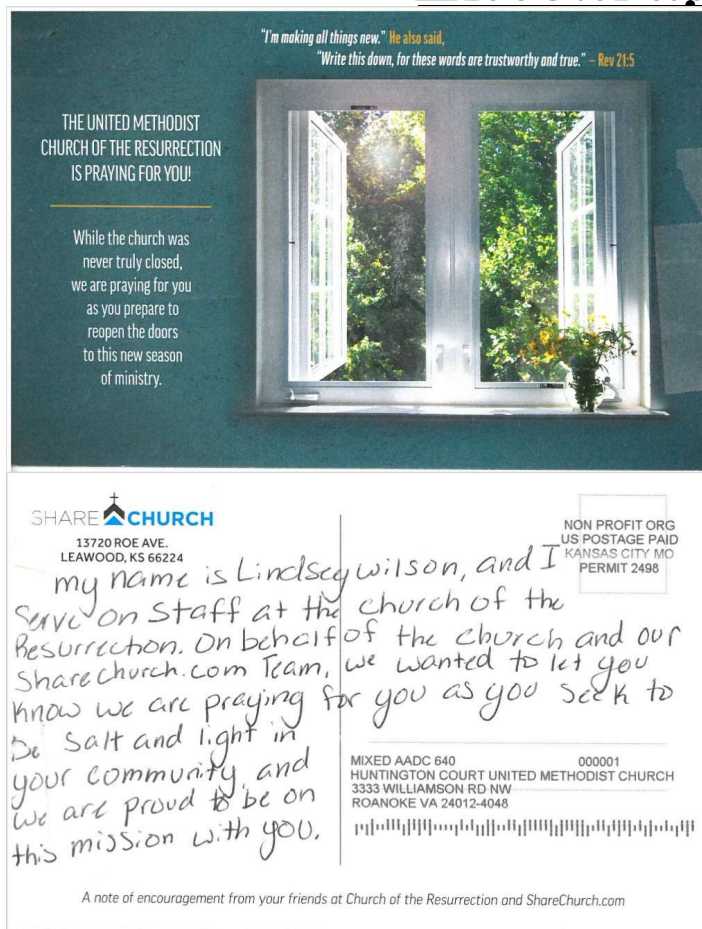 "I'm making all things new." He also said,
"Write this down, for these words are trustworthy and true." – Rev 21:5
THE UNITED METHODIST
CHURCH OF THE RESURRECTION
IS PRAYING FOR YOU!
While the church was
never truly closed,
we are praying for you
as you prepare to
reopen the doors
to this new season
of ministry.
SHARE CHURCH
13720 ROE AVE.
LEAWOOD, KS 66224
NON PROFIT ORG
US POSTAGE PAID
KANSAS CITY MO
PERMIT 2498
my name is Lindsey wilson, and I
Serve on Staff at the church of the
Resurrection. On behalf of the church and our
ShareChurch.com Team, we wanted to let you
know we are praying for you as you seek to
be salt and light in
your community, and
we are proud to be on
this mission with you.
MIXED AADC 640 000001
HUNTINGTON COURT UNITED METHODIST CHURCH
3333 WILLIAMSON RD NW
ROANOKE VA 24012-4048
A note of encouragement from your friends at Church of the Resurrection and ShareChurch.com